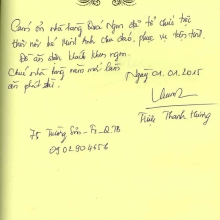 Cám ơn nhà hàng Quá Ngon đã tổ chức tiệc
thôi nôi bé Minh Anh chu đáo, phục vụ tận tình.
Đồ ăn đảm bảo khen ngon.
Chúc nhà hàng năm mới làm
ăn phát đạt.
Ngày 01.01.2015
Trần Thanh Hùng
75 Trường Sơn - P2 - Q.TB
0902904656